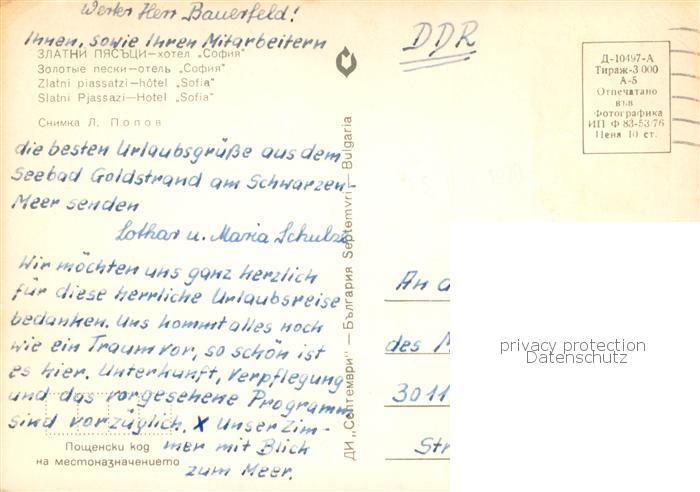 Werter Herr Bauerfeld!
Ihnen, sowie Ihren Mitarbeitern
ЗЛАТНИ ПЯСЪЦИ—хотел „София"
Золотые пески—отель „София"
Zlatni piassatzi—hôtel „Sofia"
Slatni Pjassazi—Hotel „Sofia"
Снимка Л. Попов
die besten Urlaubsgrüße aus dem
Seebad Goldstrand am Schwarzen-
Meer senden
Lothar u. Maria Schulze
Wir möchten uns ganz herzlich
für diese herrliche Urlaubsreise
bedanken. Uns kommt alles noch
wie ein Traum vor, so schön ist
es hier. Unterkunft, Verpflegung
und das vorgesehene Programm
sind vorzüglich. x Unser Zim-
mer mit Blick
zum Meer.
Пощенски код
на местоназначението
ДИ „Септември" — България Septemvri — Bulgaria
DDR
Д-10497-А
Тираж-3 000
А-5
Отпечатано
във
Фотографика
ИП Ф 83-53/76
Цена 10 ст.
An d
des M
3011
Str
privacy protection
Datenschutz